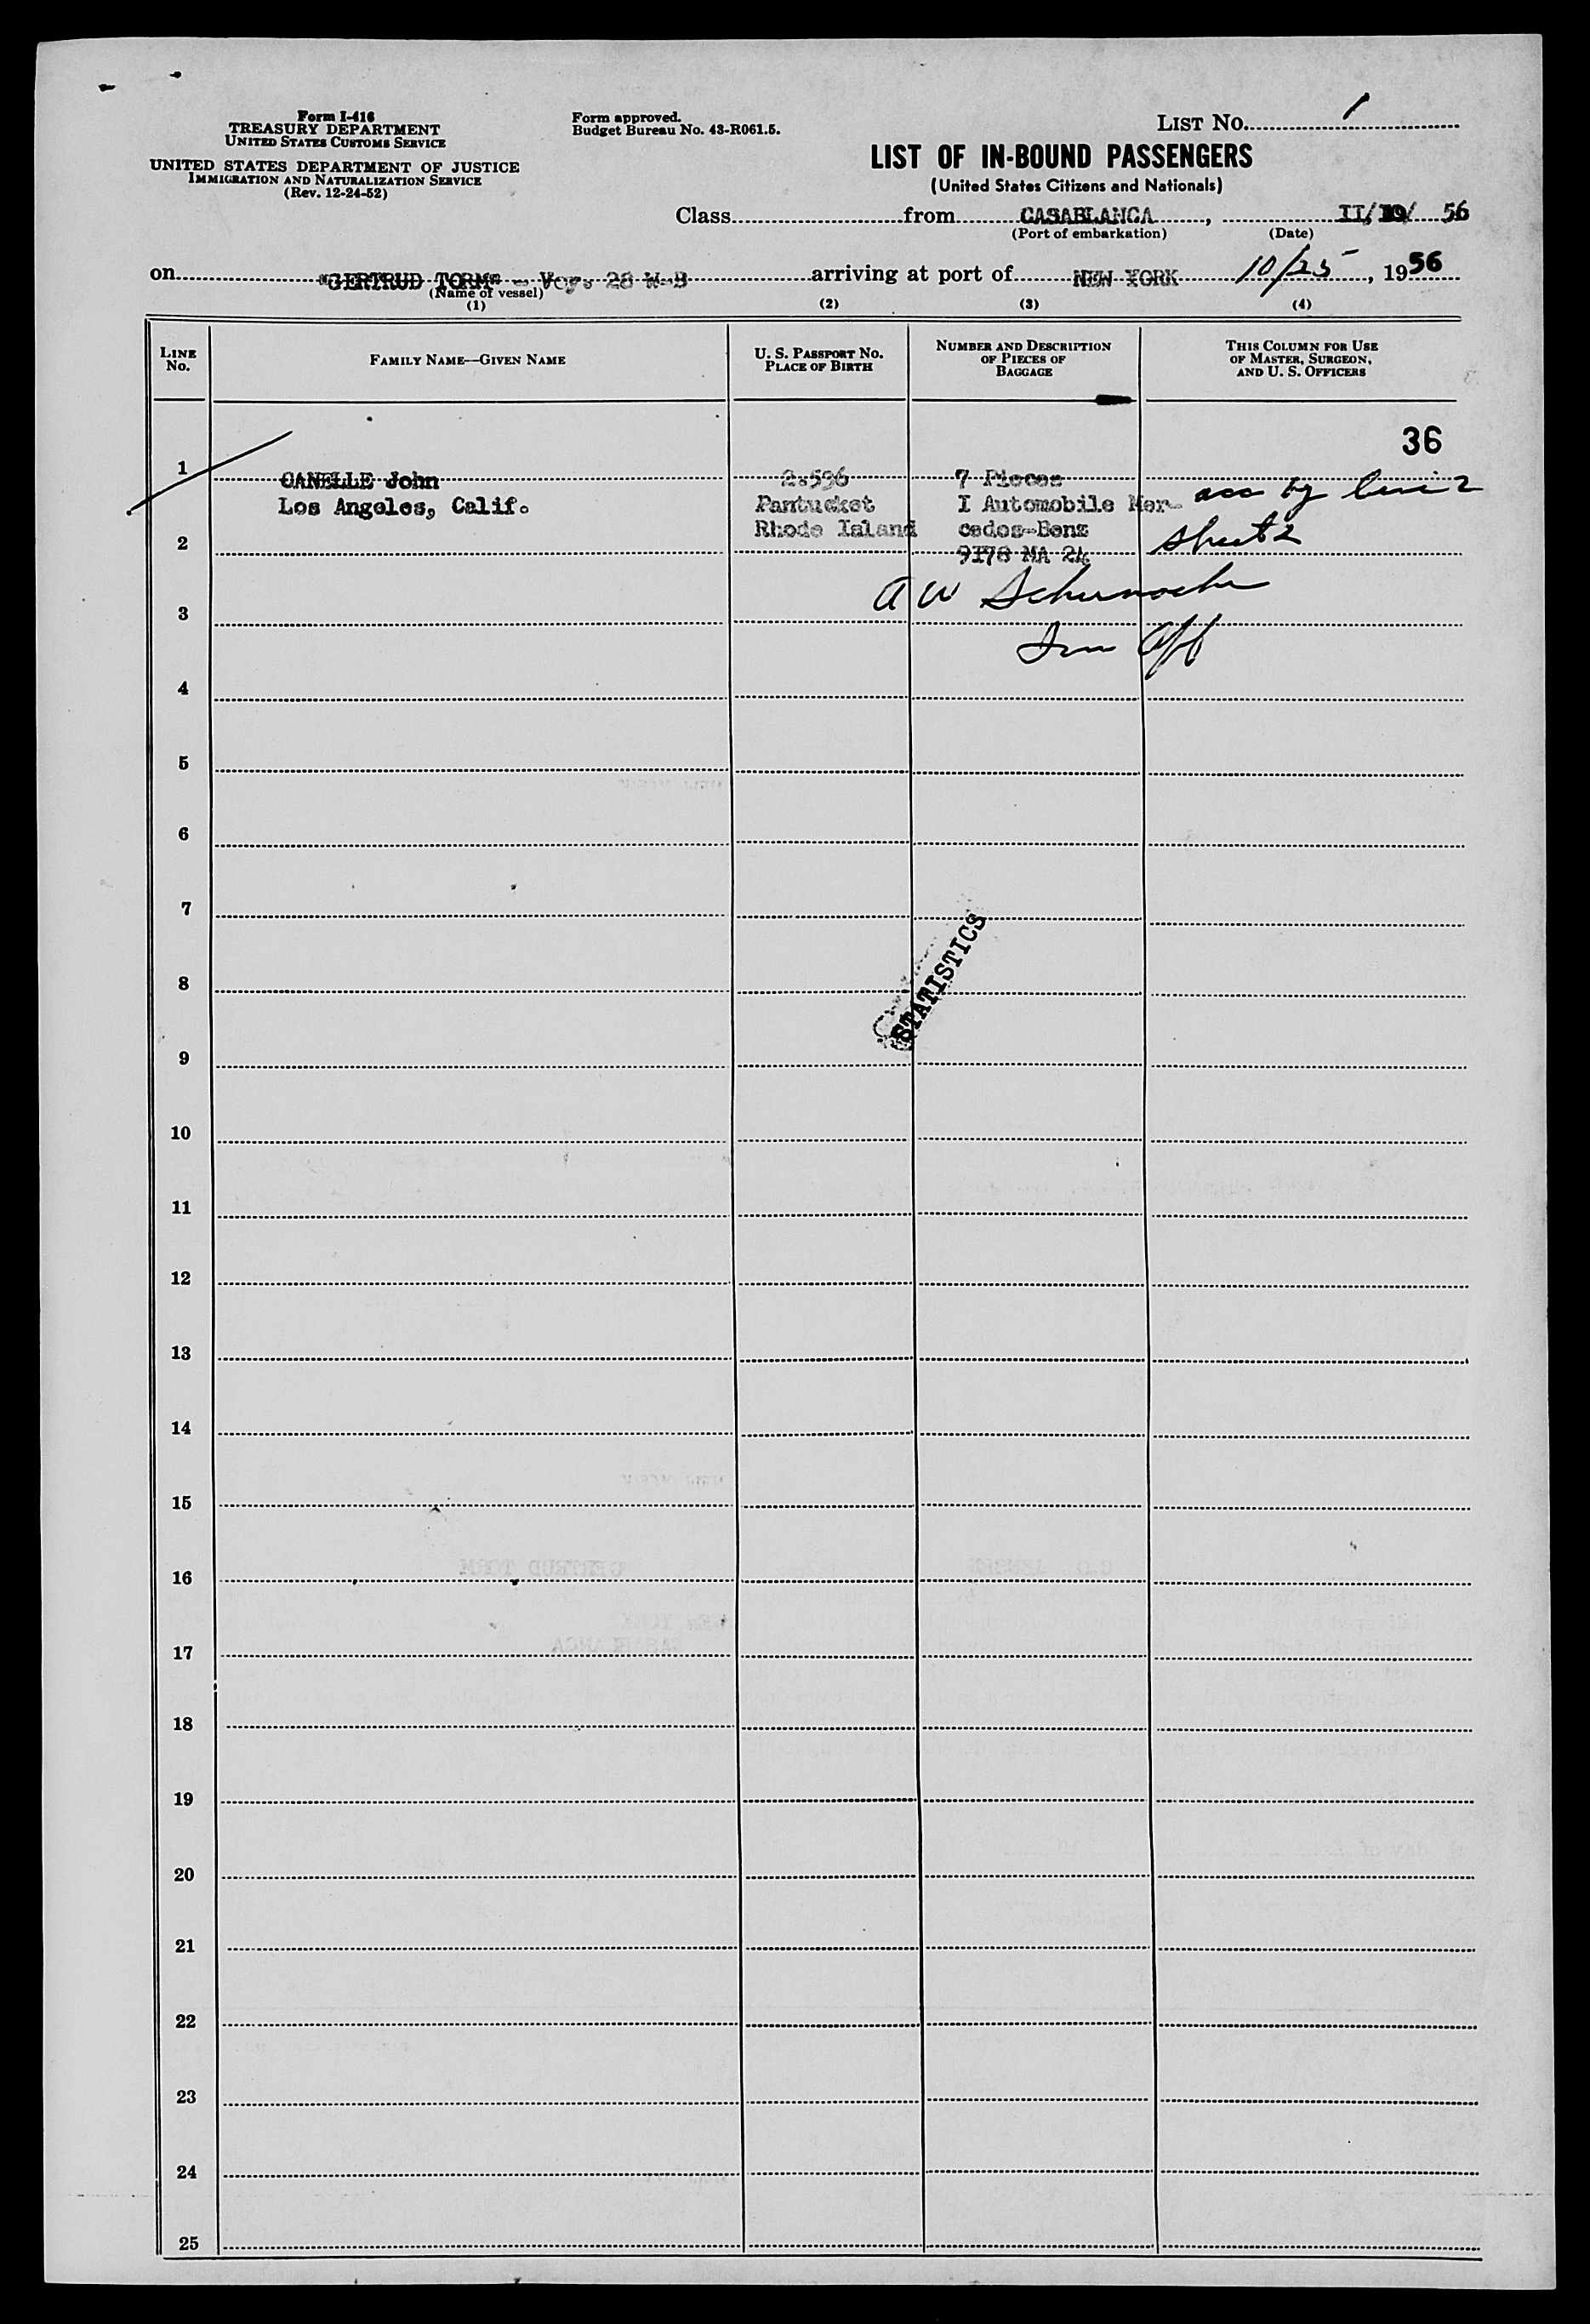 Form I-416
TREASURY DEPARTMENT
UNITED STATES CUSTOMS SERVICE
UNITED STATES DEPARTMENT OF JUSTICE
IMMIGRATION AND NATURALIZATION SERVICE
(Rev. 12-24-52)
Form approved.
Budget Bureau No. 43-R061.5.
LIST No. 1
LIST OF IN-BOUND PASSENGERS
(United States Citizens and Nationals)
Class from CASABLANCA, II/ 56
(Port of embarkation) (Date)
on "GERTRUD TORM" - Voy. 28 W-B arriving at port of NEW YORK 10/25, 1956
(Name of vessel)
(1) (2) (3) (4)
LINE No.
FAMILY NAME—GIVEN NAME
U. S. PASSPORT NO.
PLACE OF BIRTH
NUMBER AND DESCRIPTION
OF PIECES OF
BAGGAGE
THIS COLUMN FOR USE
OF MASTER, SURGEON,
AND U. S. OFFICERS
36
1 CANELLE John 2.596 7 Pieces
Los Angeles, Calif. Pantucket I Automobile Mer- acc by line 2
Rhode Island cedes-Benz sheet 2
2 9I78 MA 24
A W
3
Imm Off
4
5
6
7
STATISTICS
8
9
10
11
12
13
14
15
16
17
18
19
20
21
22
23
24
25